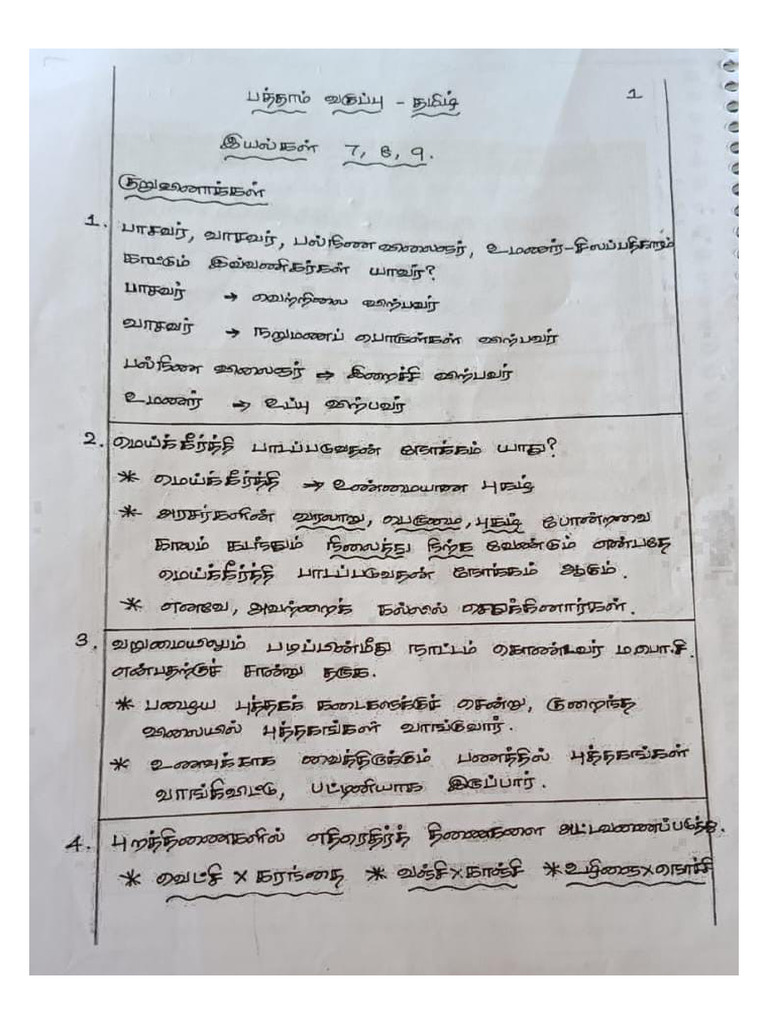 பத்தாம் வகுப்பு - தமிழ் 1
இயல்கள் 7, 8, 9.
குறுவினாக்கள்
1. பாசவர், வாசவர், பல்நிண விலைஞர், உமணர்-சிலப்பதிகாரம்
காட்டும் இவ்வணிகர்கள் யாவர்?
பாசவர் → வெற்றிலை விற்பவர்
வாசவர் → நறுமணப் பொருள்கள் விற்பவர்
பல்நிண விலைஞர் → இறைச்சி விற்பவர்
உமணர் → உப்பு விற்பவர்
2. மெய்க்கீர்த்தி பாடப்படுவதன் நோக்கம் யாது?
* மெய்க்கீர்த்தி → உண்மையான புகழ்
* அரசர்களின் வரலாறு, பெருமை, புகழ் போன்றவை
காலம் கடந்தும் நிலைத்து நிற்க வேண்டும் என்பதே
மெய்க்கீர்த்தி பாடப்படுவதன் நோக்கம் ஆகும்.
* எனவே, அவற்றைக் கல்லில் செதுக்கினார்கள்.
3. வறுமையிலும் படிப்பின்மீது நாட்டம் கொண்டவர் ம.பொ.சி.
என்பதற்குச் சான்று தருக.
* பழைய புத்தகக் கடைகளுக்குச் சென்று, குறைந்த
விலையில் புத்தகங்கள் வாங்குவார்.
* உணவுக்காக வைத்திருக்கும் பணத்தில் புத்தகங்கள்
வாங்கிவிட்டு, பட்டினியாக இருப்பார்.
4. புறத்திணைகளில் எதிரெதிர்த் திணைகளை அட்டவணைப்படுத்து.
* வெட்சி x கரந்தை * வஞ்சி x காஞ்சி * உழிஞை x நொச்சி